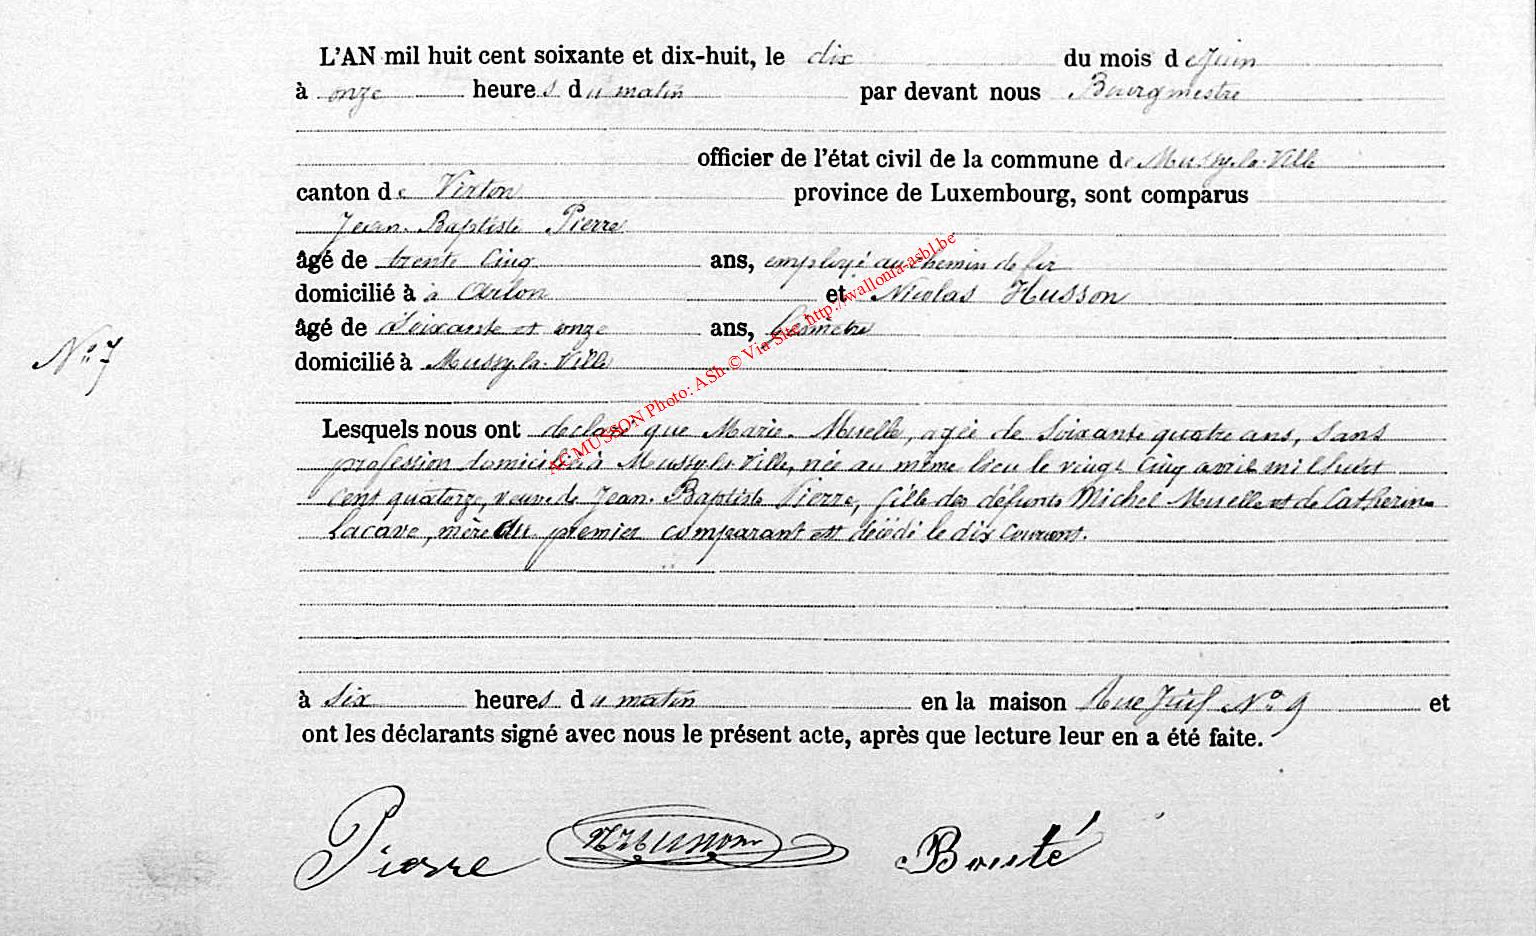 L'AN mil huit cent soixante et dix-huit, le dix du mois de Juin
à onze heures du matin par devant nous Bourgmestre
officier de l'état civil de la commune de Mussy-la-Ville
canton de Virton province de Luxembourg, sont comparus
Jean-Baptiste Pierre
âgé de trente cinq ans, employé au chemin de fer
domicilié à à Arlon et Nicolas Husson
âgé de soixante et onze ans, Géomètre
N° 7
domicilié à Mussy-la-Ville
Lesquels nous ont déclaré que Marie Muselle, agée de soixante quatre ans, sans
profession domiciliée à Mussy-la-Ville, née au même lieu le vingt cinq avril mil huit
cent quatorze, veuve de Jean-Baptiste Pierre, fille des défunts Michel Muselle et de Catherine
Lacave, mère du premier comparant est décédé le dix courant.
à six heures du matin en la maison Rue N° 9 et
ont les déclarants signé avec nous le présent acte, après que lecture leur en a été faite.
Pierre NHusson Bouté
AC MUSSON Photo: ASh © Via Site http://wallonia-asbl.be